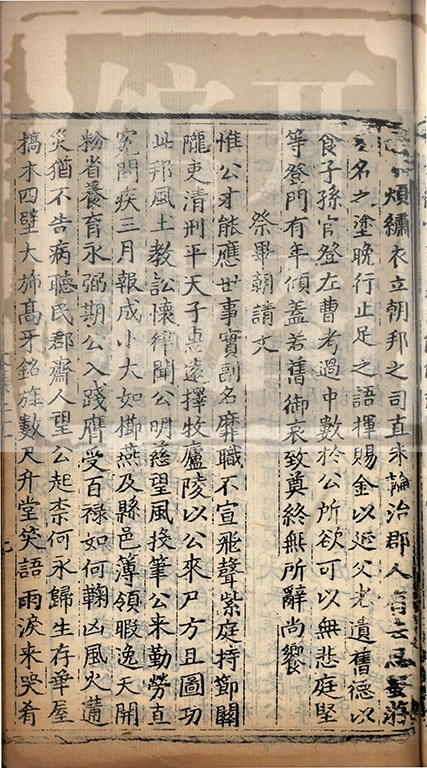 煩繡衣立朝邦之司直來論治郡人
名之塗晚行止足之語揮賜金以延父老遺舊德以
食子孫官登左曹考過中數於公所欲可以無悲庭堅
等登門有年傾蓋若舊御哀致奠終無所辭尚饗
祭畢朝請文
惟公才能應世事實副名靡職不宣飛聲紫庭持節關
隴吏清刑平天子㤙遠擇牧廬陵以公來尸方且圖功
此邦風土教訟懷律聞公明慈望風投筆公來勤勞直
冤問疾三月報成小大如櫛燕及縣邑薄領暇逸天開
粉省養育永弼期公入踐膺受百祿如何鞠凶風火菑
災猶不告病聽民郡齋人望公起柰何永歸生存華屋
槁木四壁大斾高牙銘旌數尺升堂笑語雨淚來哭肴